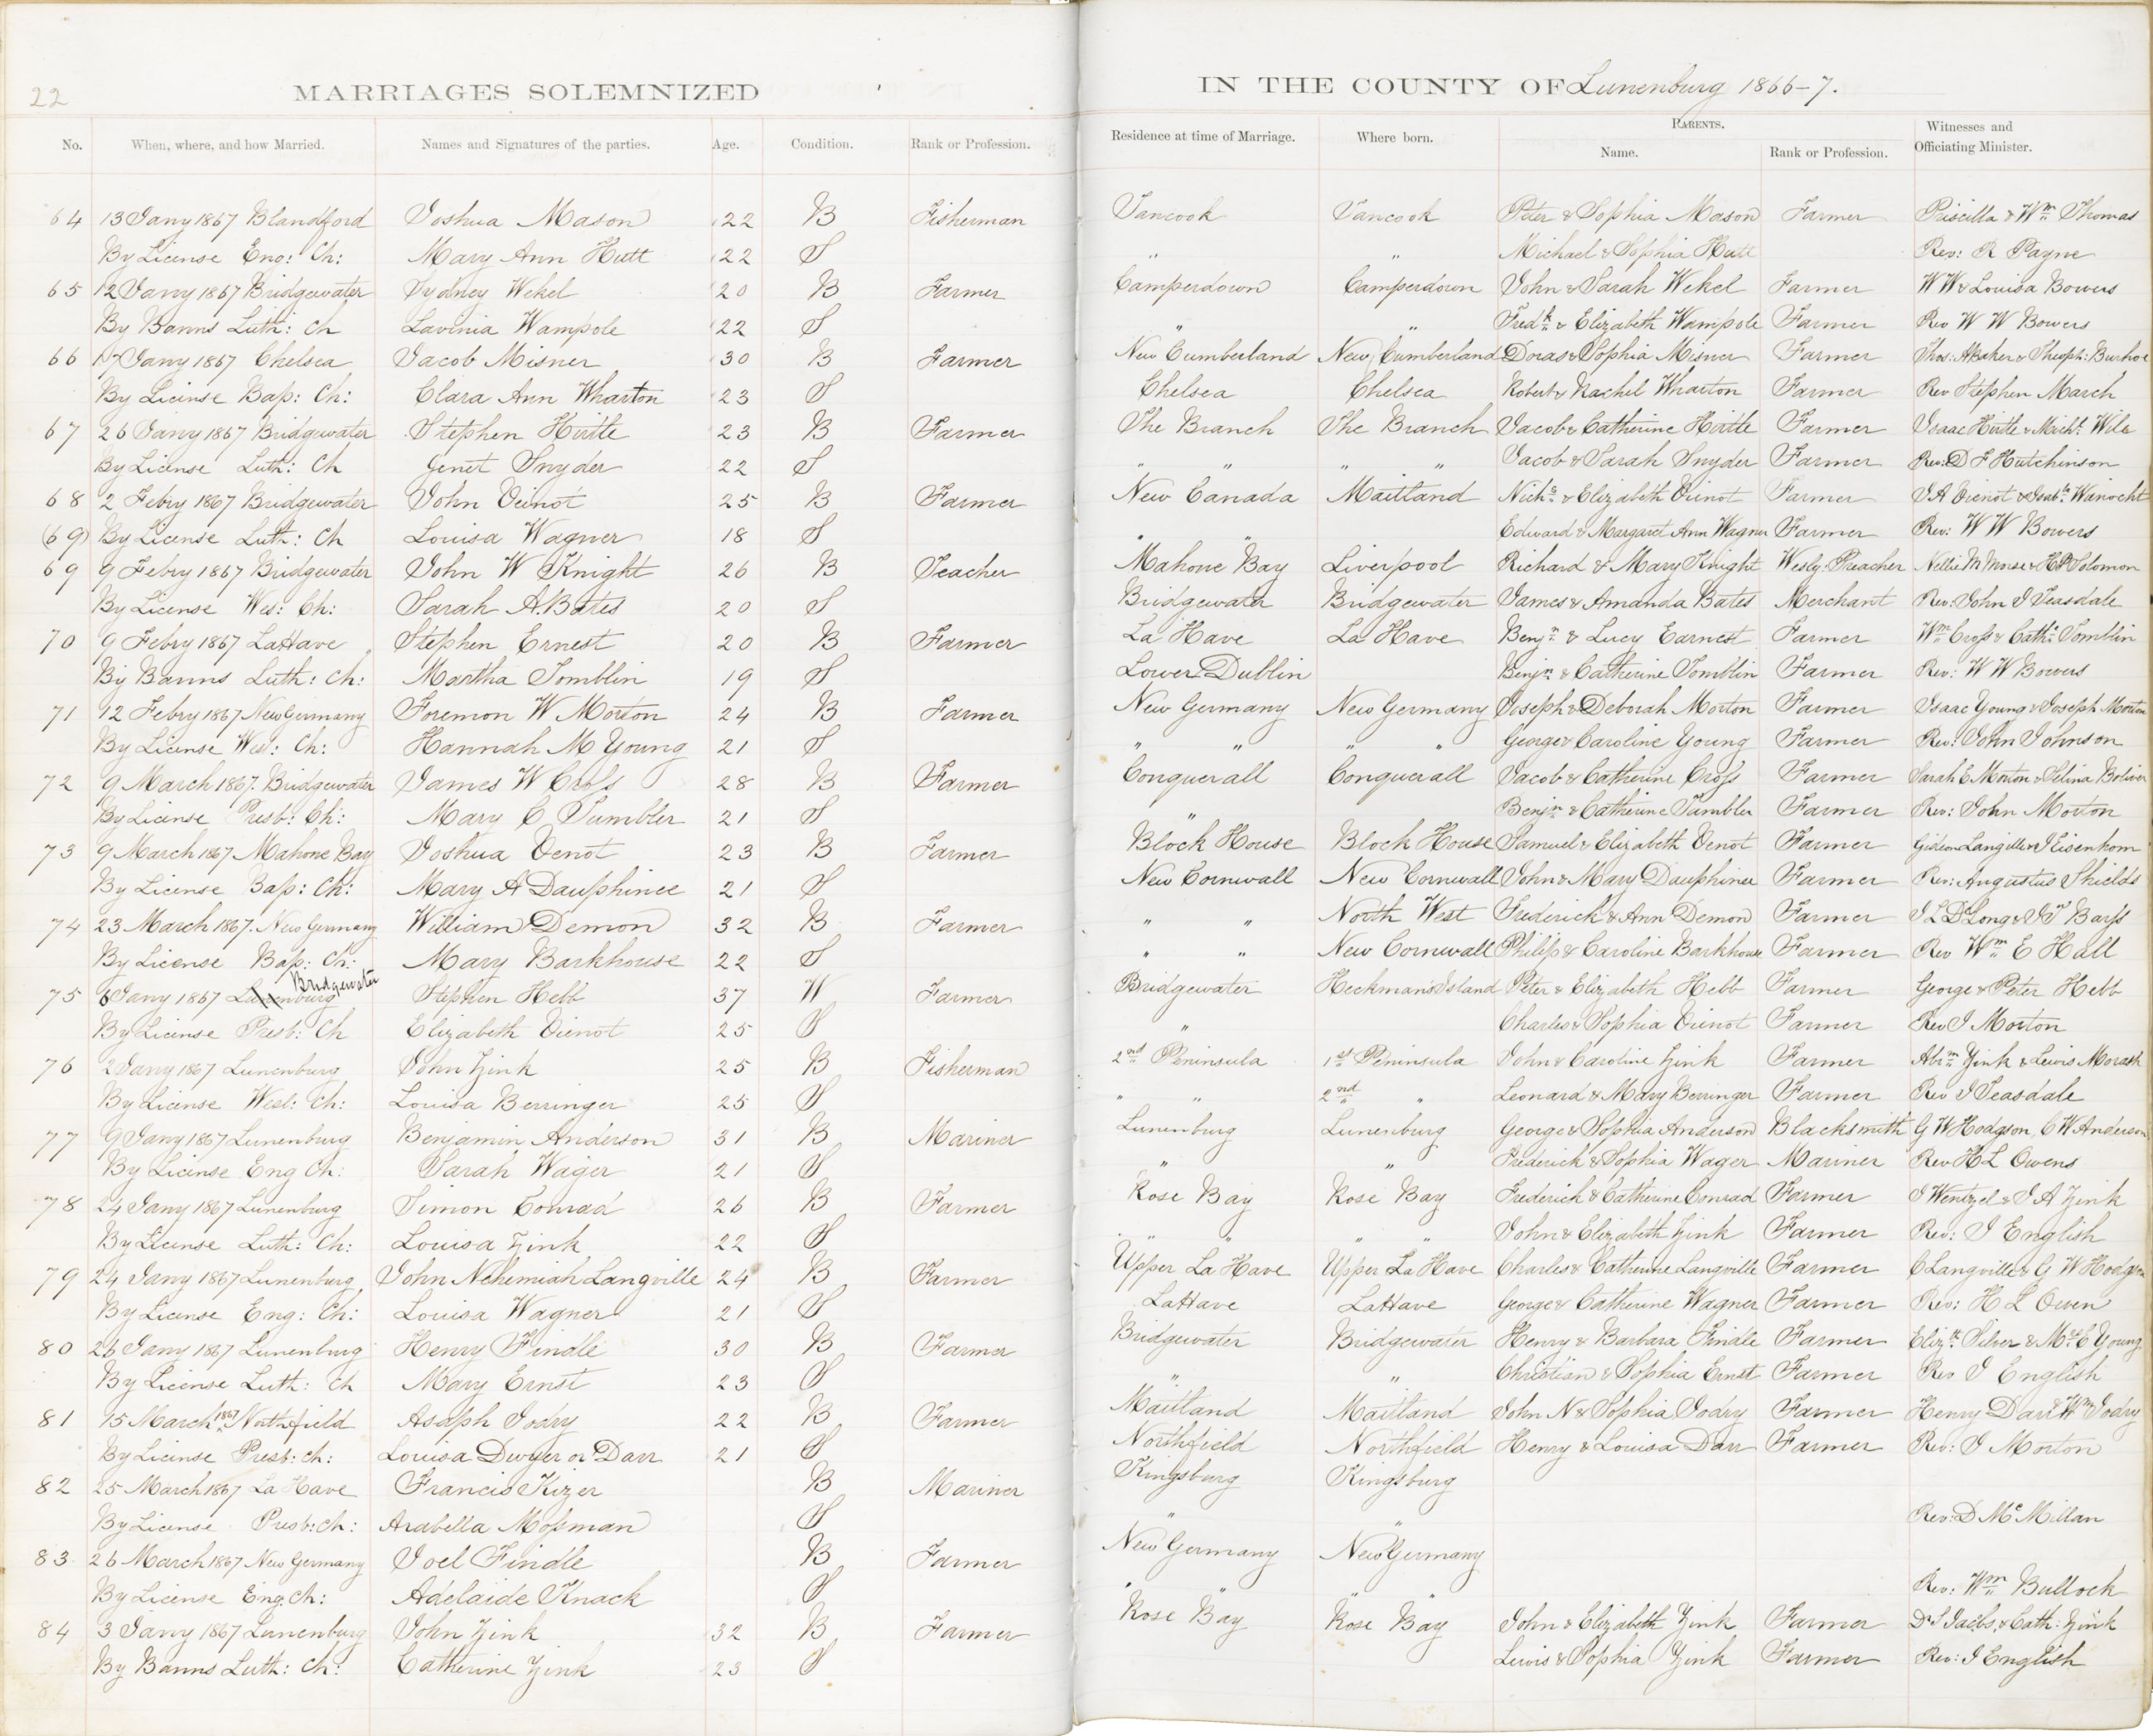 22
MARRIAGES SOLEMNIZED IN THE COUNTY OF Lunenburg 1866-7.
No. When, where, and how Married. Names and Signatures of the parties. Age. Condition. Rank or Profession. Residence at time of Marriage. Where born. PARENTS. Name. Rank or Profession. Witnesses and Officiating Minister.
64 13 Jany 1867 Blandford Joshua Mason 22 B Fisherman Tancook Tancook Peter & Sophia Mason Farmer Priscilla & Wm Thomas
By License Eng: Ch: Mary Ann Hutt 22 S " " Michael & Sophia Hutt Rev: R Payne
65 12 Jany 1867 Bridgewater Sydney Wekel 20 B Farmer Camperdown Camperdown John & Sarah Wekel Farmer W W & Louisa Bowers
By Banns Luth: Ch Lavinia Wampole 22 S " " Fredk & Elizabeth Wampole Farmer Rev W W Bowers
66 17 Jany 1867 Chelsea Jacob Misner 30 B Farmer New Cumberland New Cumberland Doras & Sophia Misner Farmer Thos: A Baker & Theoph:
By License Bap: Ch: Clara Ann Wharton 23 S Chelsea Chelsea Robert & Rachel Wharton Farmer Rev Stephen March
67 26 Jany 1867 Bridgewater Stephen Hirtle 23 B Farmer The Branch The Branch Jacob & Catherine Hirtle Farmer Isaac Hirtle & Michl. Wile
By License Luth: Ch Genet Snyder 22 S " " " " Jacob & Sarah Snyder Farmer Rev: D F Hutchinson
68 2 Febry 1867 Bridgewater John Veinot 25 B Farmer New Canada Maitland Nichs & Elizabeth Veinot Farmer J A Veinot &
(69) By License Luth: Ch Louisa Wagner 18 S " " Edward & Margaret Ann Wagner Farmer Rev: W W Bowers
69 9 Febry 1867 Bridgewater John W Knight 26 B Teacher Mahone Bay Liverpool Richard & Mary Knight Wesly: Preacher Nellie M Morse & H P Solomon
By License Wes: Ch: Sarah A. Bates 20 S Bridgewater Bridgewater James & Amanda Bates Merchant Rev: John J Teasdale
70 9 Febry 1867 LaHave Stephen Ernest 20 B Farmer La Have La Have Benjn & Lucy Earnest Farmer Wm Cross & Cath: Tomblin
By Banns Luth: Ch: Martha Tomblin 19 S Lower Dublin Benjn & Catherine Tomblin Farmer Rev: W W Bowers
71 12 Febry 1867 New Germany Foremon W Morton 24 B Farmer New Germany New Germany Joseph & Deborah Morton Farmer Isaac Young & Joseph Morton
By License Wes: Ch: Hannah M Young 21 S " " " " George & Caroline Young Farmer Rev: John Johnson
72 9 March 1867. Bridgewater James W Cross 28 B Farmer Conquerall Conquerall Jacob & Catherine Cross Farmer Sarah E Morton & Selina Boliver
By License Presb: Ch: Mary C Tumbler 21 S " Benjn & Catherine Tumbler Farmer Rev: John Morton
73 9 March 1867 Mahone Bay Joshua Venot 23 B Farmer Block House Block House Samuel & Elizabeth Venot Farmer Gideon Langille & J Eisenhorn
By License Bap: Ch: Mary A Dauphinee 21 S New Cornwall New Cornwall John & Mary Dauphinee Farmer Rev: Augustus Shields
74 23 March 1867. New Germany William Demon 32 B Farmer " " North West Frederick & Ann Demon Farmer J L DeLong & J T Barss
By License Bap: Ch: Mary Barkhouse 22 S " " New Cornwall Philip & Caroline Barkhouse Farmer Rev Wm E Hall
Bridgewater
75 6 Jany 1867 Lunenburg Stephen Hebb 37 W Farmer Bridgewater Heckmans Island Peter & Elizabeth Hebb Farmer George & Peter Hebb
By License Presb: Ch Elizabeth Veinot 25 S " Charles & Sophia Veinot Farmer Rev J Morton
76 2 Jany 1867 Lunenburg John Zink 25 B Fisherman 2nd Peninsula 1st Peninsula John & Caroline Zink Farmer Abrm Zink & Lewis Morash
By License Wesl: Ch: Louisa Berringer 25 S " " 2nd " Leonard & Mary Berringer Farmer Rev J Teasdale
77 9 Jany 1867 Lunenburg Benjamin Anderson 31 B Mariner Lunenburg Lunenburg George & Sophia Anderson Blacksmith G W Hodgson, C W Anderson
By License Eng Ch: Sarah Wager 21 S " " Frederick & Sophia Wager Mariner Rev H L Owens
78 24 Jany 1867 Lunenburg Simon Conrad 26 B Farmer Rose Bay Rose Bay Frederick & Catherine Conrad Farmer J Wentzel & J A Zink
By License Luth: Ch: Louisa Zink 22 S " " " " John & Elizabeth Zink Farmer Rev: J English
79 24 Jany 1867 Lunenburg John Nehemiah Langville 24 B Farmer Upper La Have Upper La Have Charles & Catherine Langville Farmer C Langville & G W Hodgson
By License Eng: Ch: Louisa Wagner 21 S LaHave LaHave George & Catherine Wagner Farmer Rev: H L Owen
80 26 Jany 1867 Lunenburg Henry Findle 30 B Farmer Bridgewater Bridgewater Henry & Barbara Findle Farmer Elizth Silver & E Young
By License Luth: Ch Mary Ernst 23 S " " Christian & Sophia Ernst Farmer Rev J English
81 15 March 1867 Northfield Asaph Jodry 22 B Farmer Maitland Maitland John N & Sophia Jodry Farmer Henry Darr & Wm Jodry
By License Presb: Ch: Louisa Dwyer or Darr 21 S Northfield Northfield Henry & Louisa Darr Farmer Rev: J Morton
82 25 March 1867 La Have Francis Kizer B Mariner Kingsburg Kingsburg
By License Presb: Ch: Arabella Mosman S " " Rev: D McMillan
83 26 March 1867 New Germany Joel Findle B Farmer New Germany New Germany
By License Eng: Ch: Adelaide Knack S " " " " Rev: Wm Bullock
84 3 Jany 1867 Lunenburg John Zink 32 B Farmer Rose Bay Rose Bay John & Elizabeth Zink Farmer Dr S Jacobs, & Cath: Zink
By Banns Luth: Ch: Catherine Zink 23 S Lewis & Sophia Zink Farmer Rev: J English